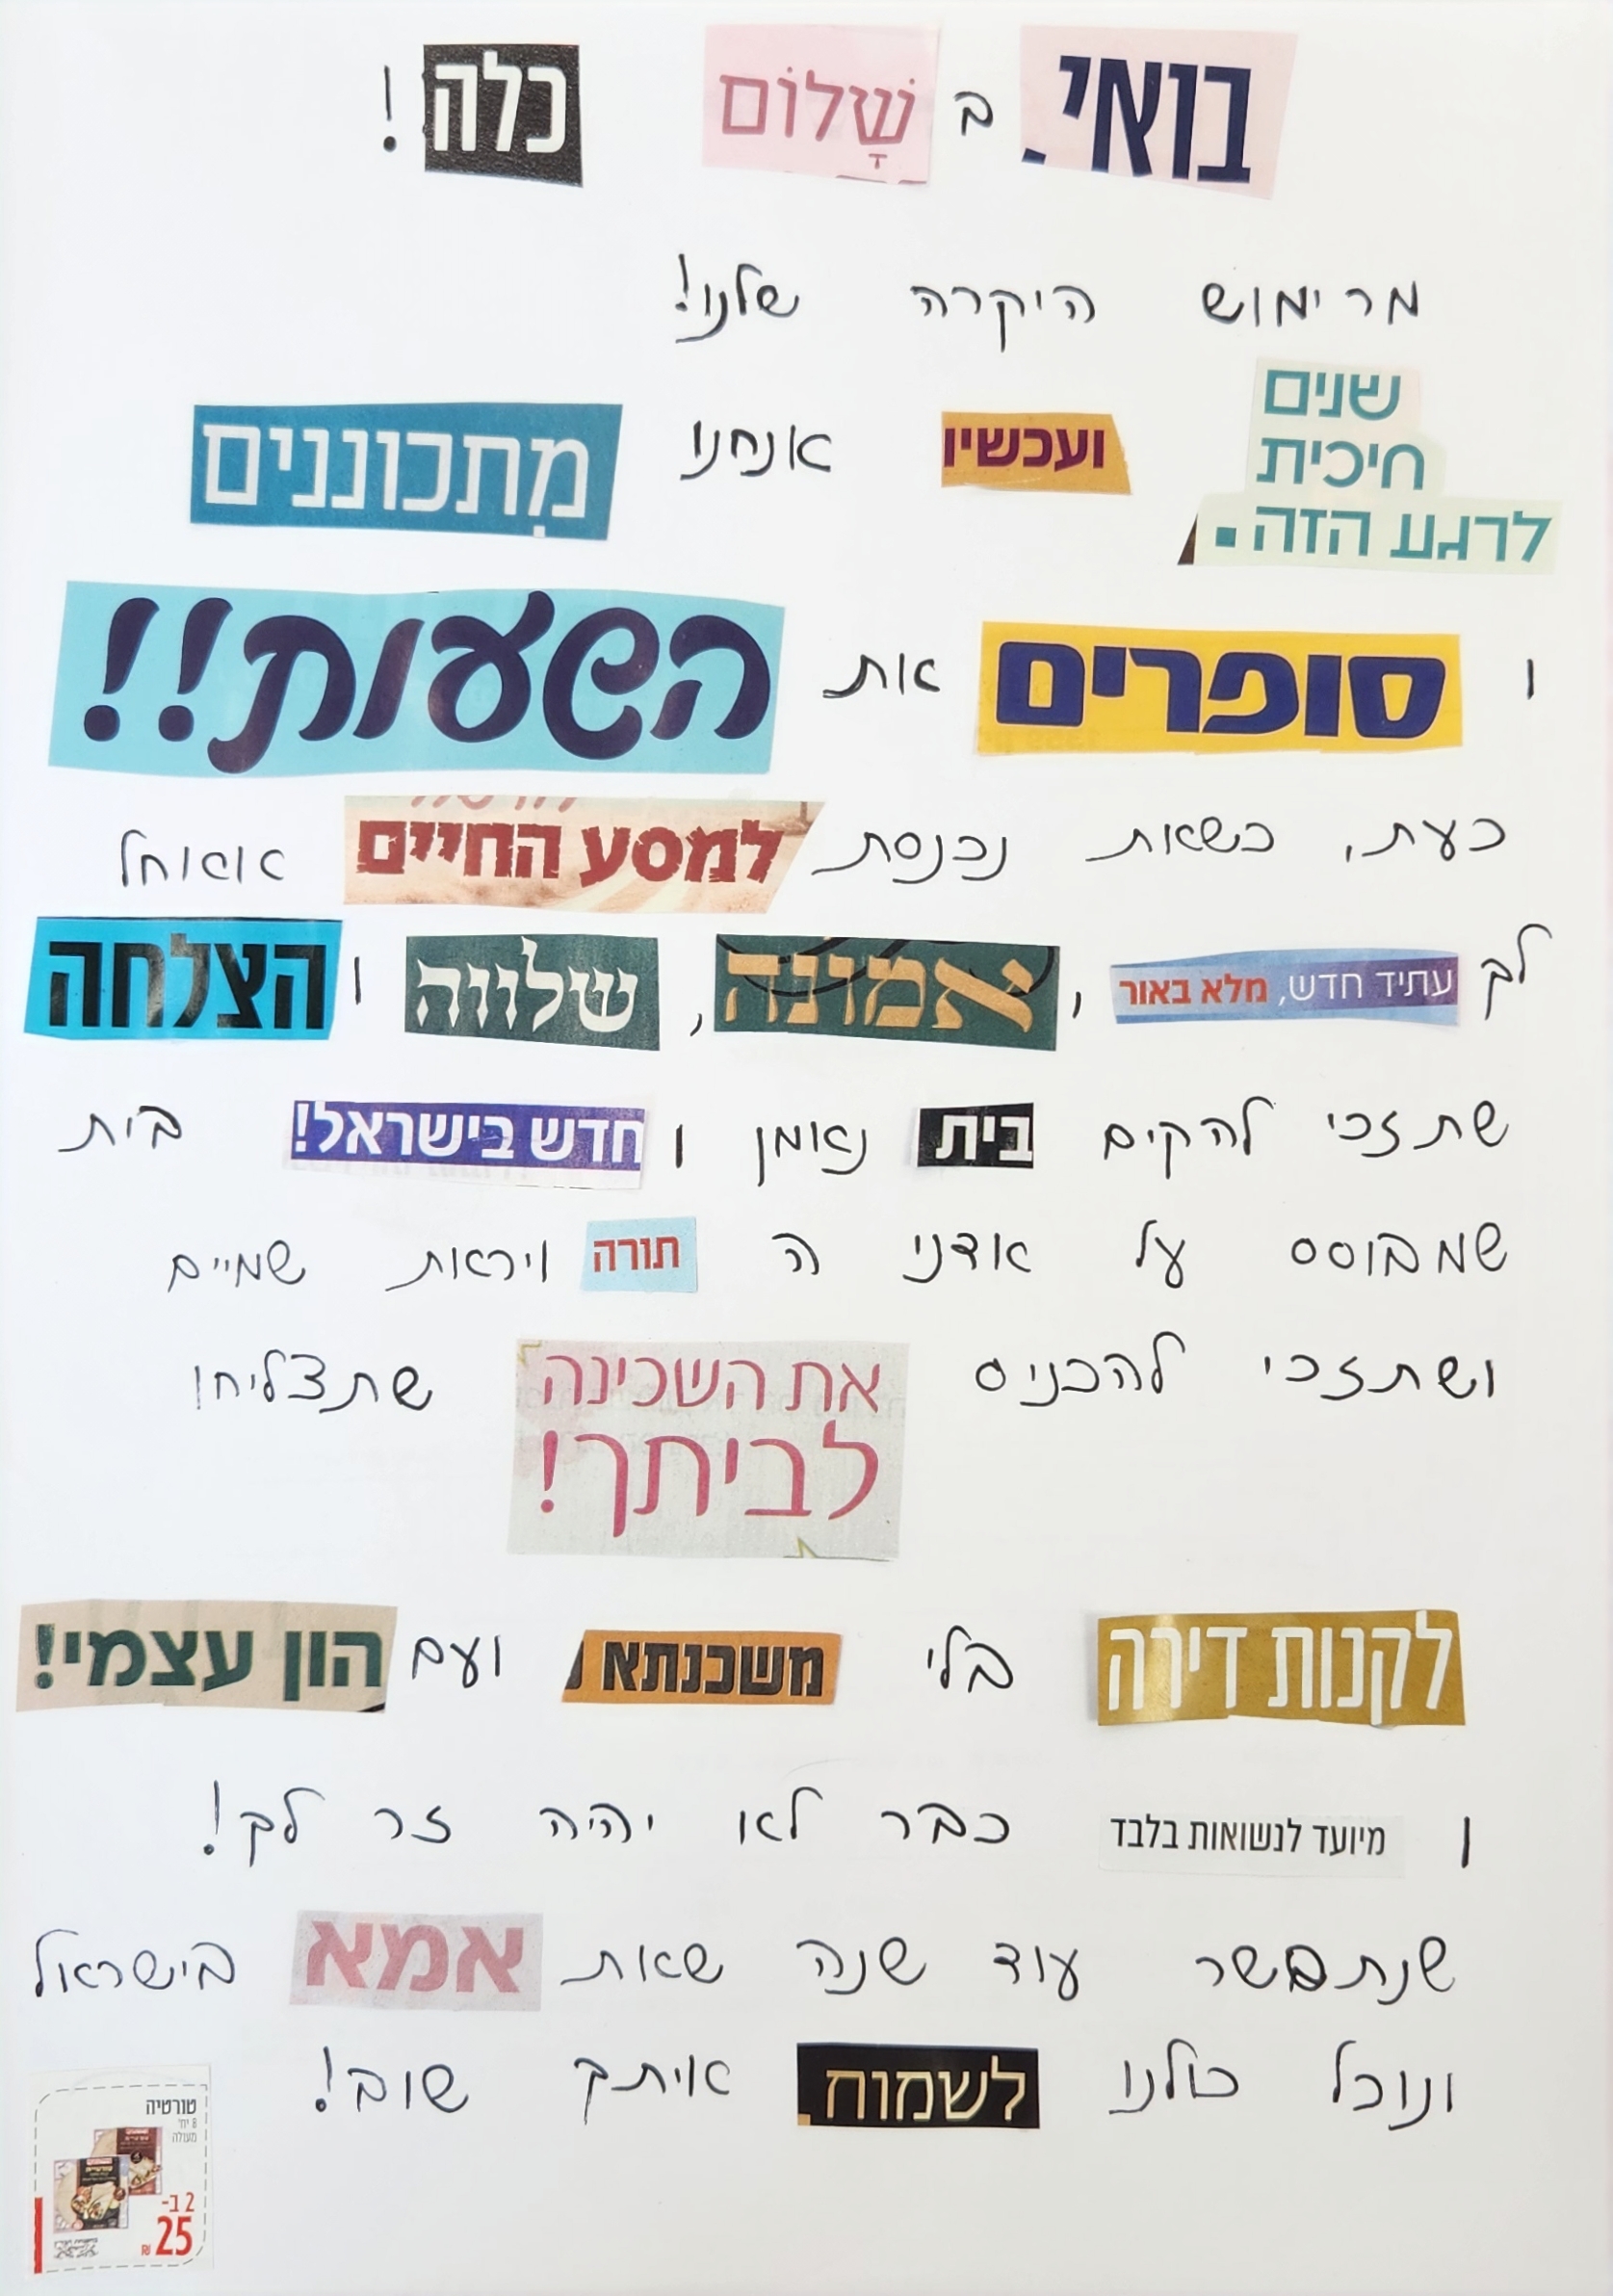 בואי. ב שָׁלוֹם כלה!
מרימוש היקרה שלנו!
שנים
חיכית
לרגע הזה. ועכשיו אנחנו מִתכוננים
ו סופרים את השעות!!
כעת, כשאת נכנסת למסע החיים אאוחל
לך עתיד חדש, מלא באור, אמונה, שלווה והצלחה
שתזכי להקים בית נאמן ו חדש בישראל! בית
שמבוסס על אדני ה תורה ויראות שמיים
ושתזכי להכניס את השכינה
לביתך! שתצליחו
לקנות דירה בלי משכנתא ועם הון עצמי!
ו מיועד לנשואות בלבד כבר לא יהיה זר לך!
שנתבשר עוד שנה שאת אמא בישראל
ונוכל כולנו לשמוח. איתך שוב!
טורטיה
8 יח'
מעולה
2 ב-
25 ₪